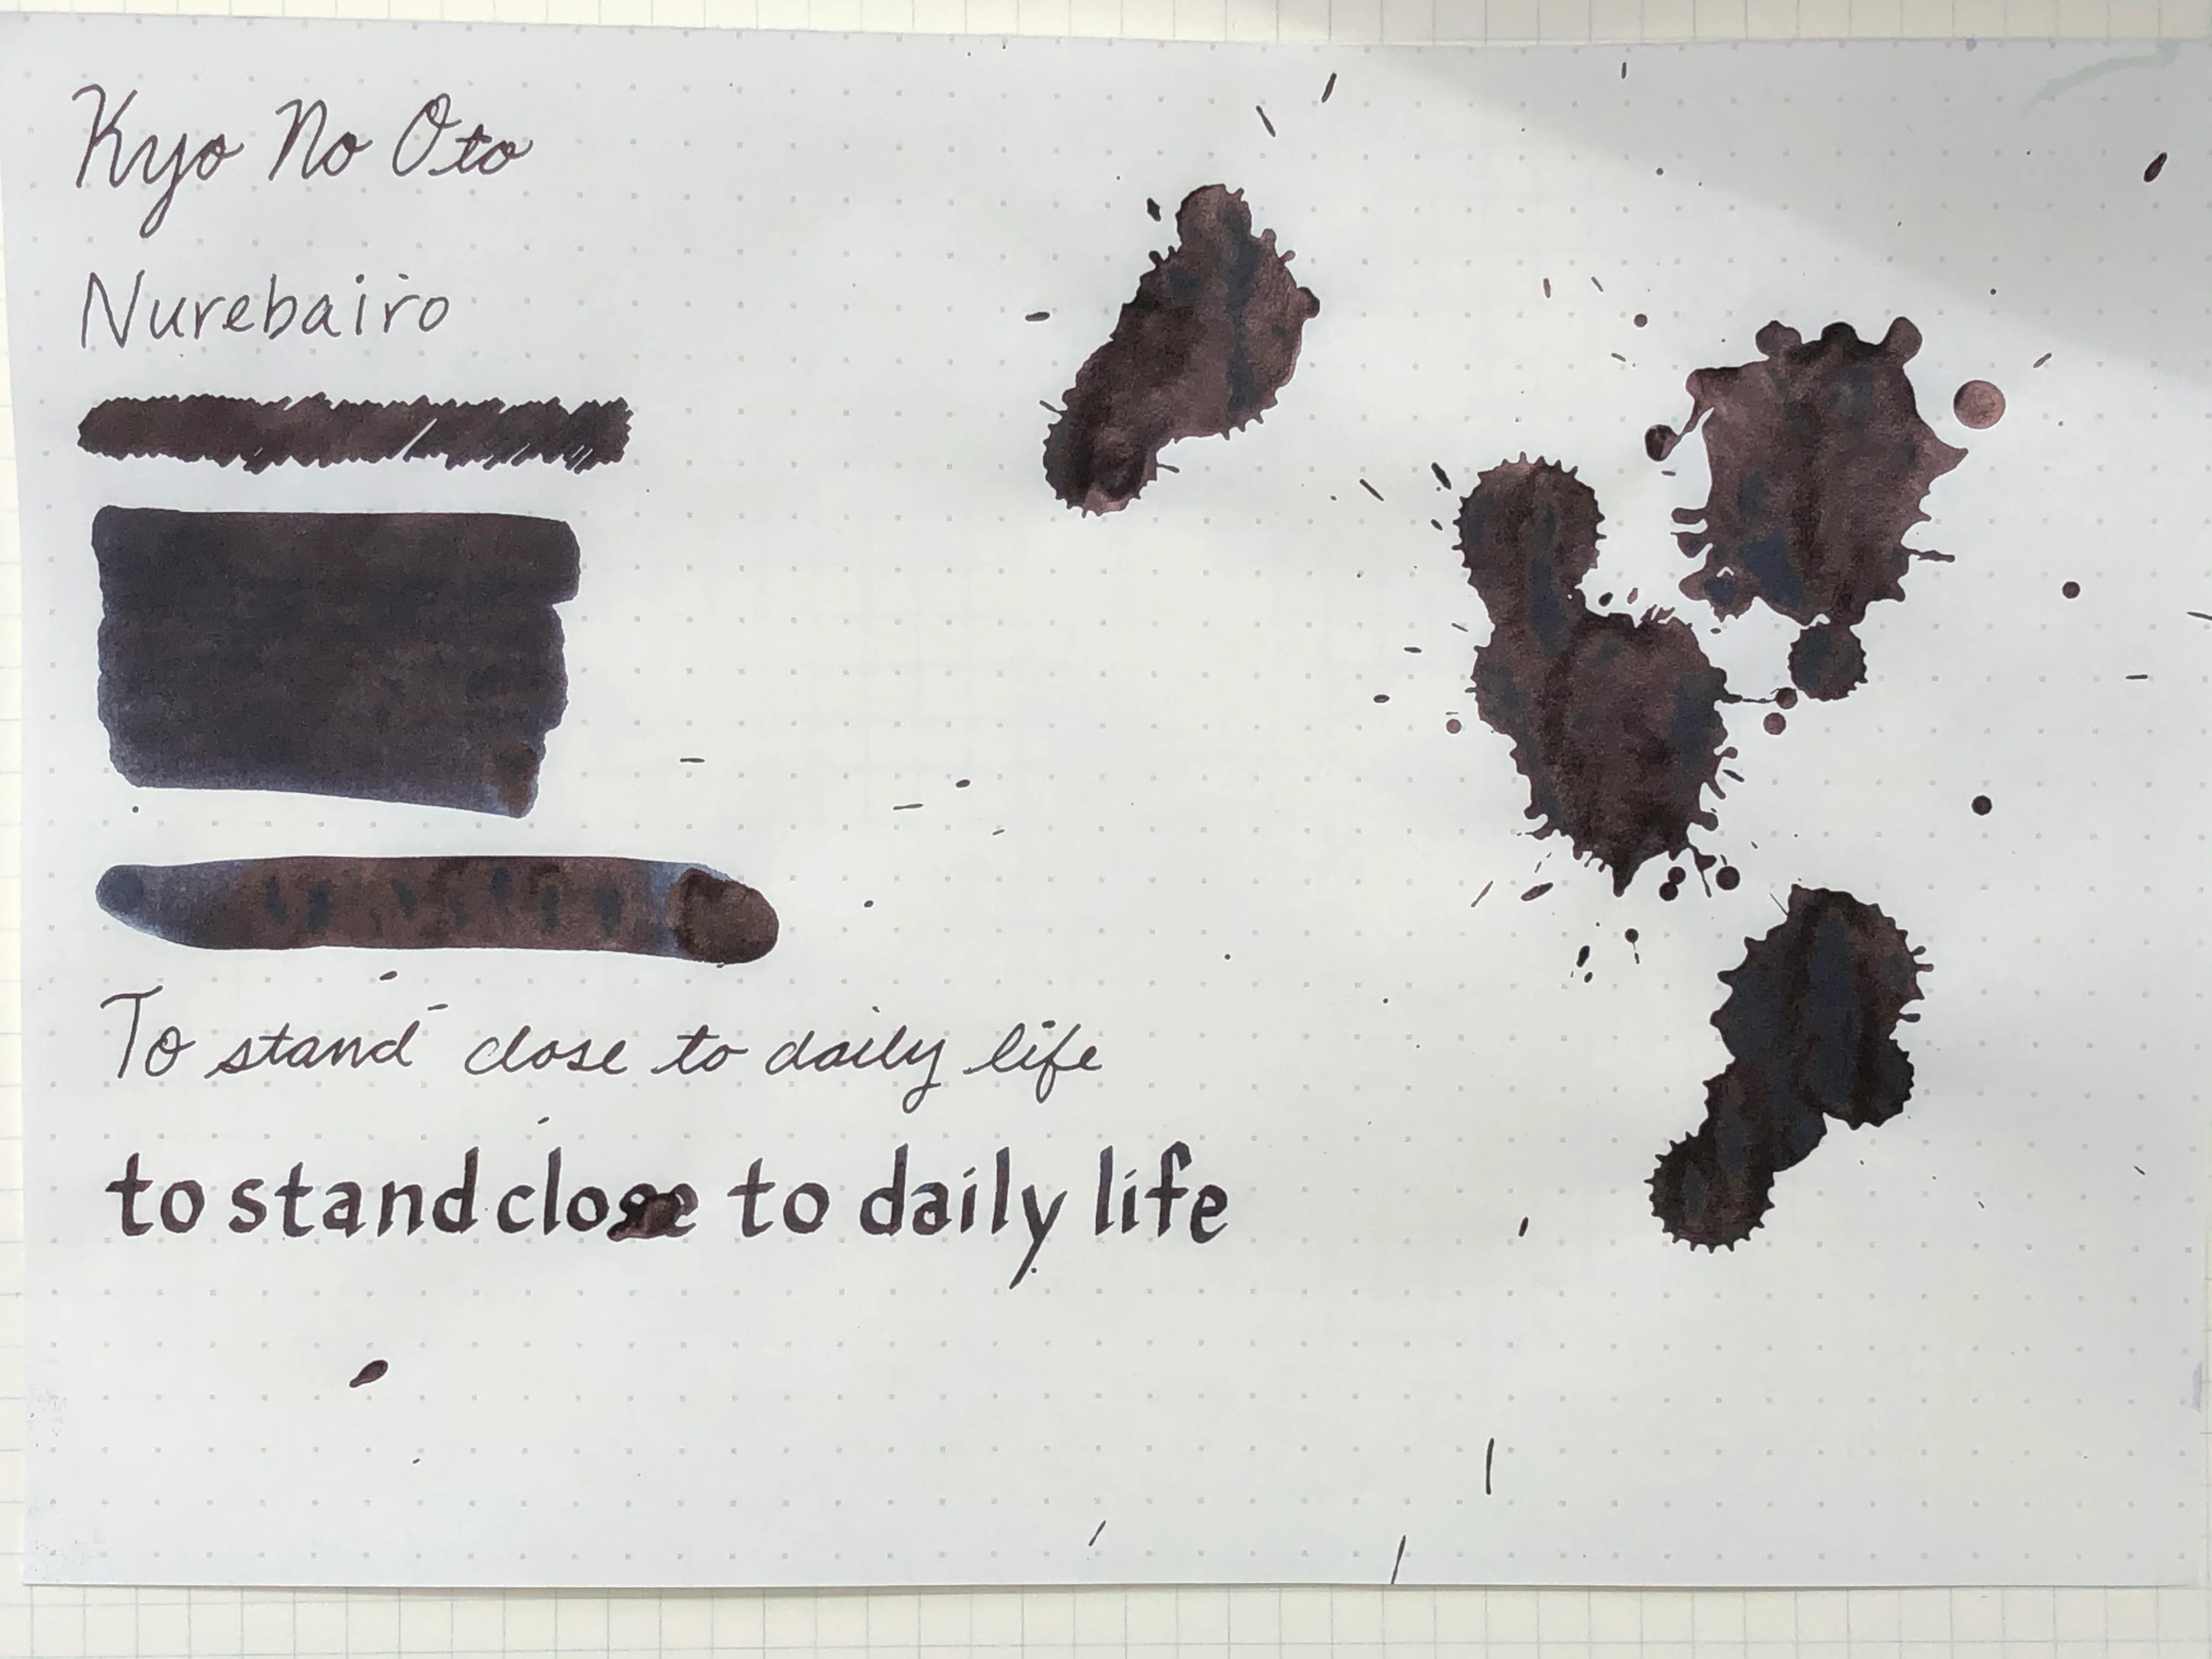 Kyo No Oto
Nurebairo
To stand close to daily life
to stand close to daily life